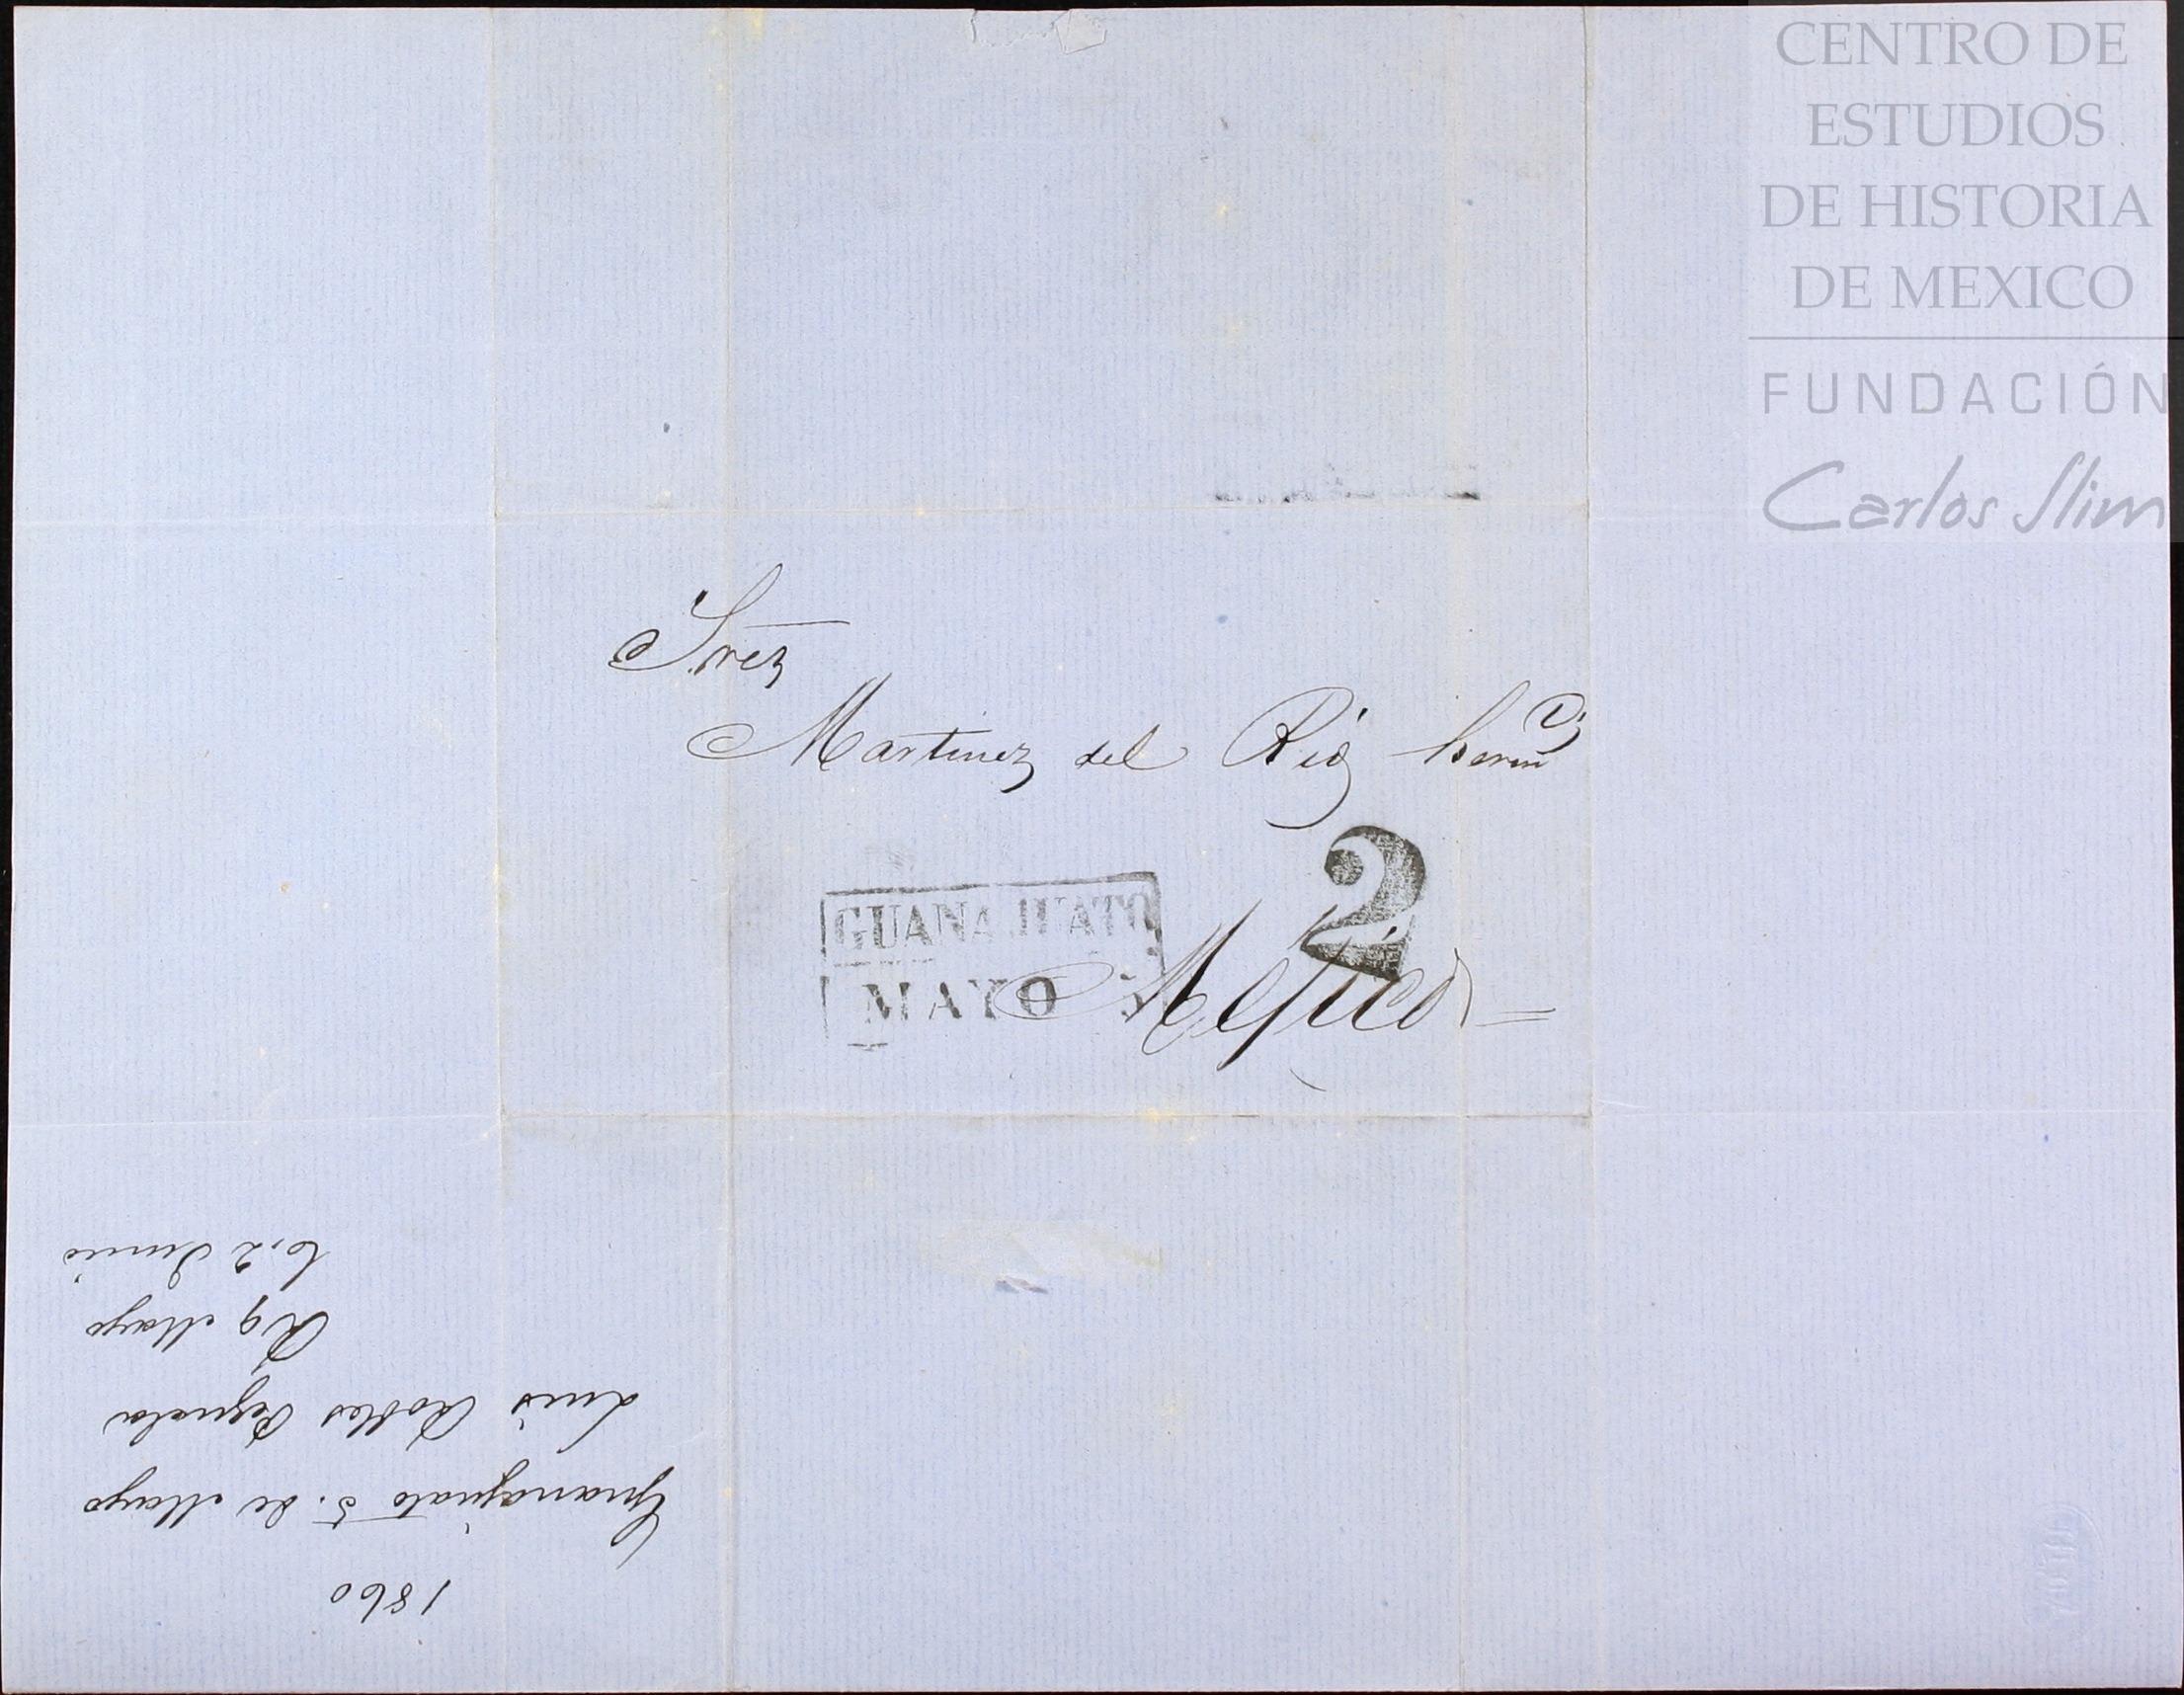 CENTRO DE
ESTUDIOS
DE HISTORIA
DE MEXICO
FUNDACIÓN
Carlos Slim
Sres
Martinez del Rio herm^os
2
GUANAJUATO
MAYO 5
Mejico
1860
Guanajuato 5. de Mayo
Luis Robles Pezuela
R 9 Mayo
C, 2 Junio